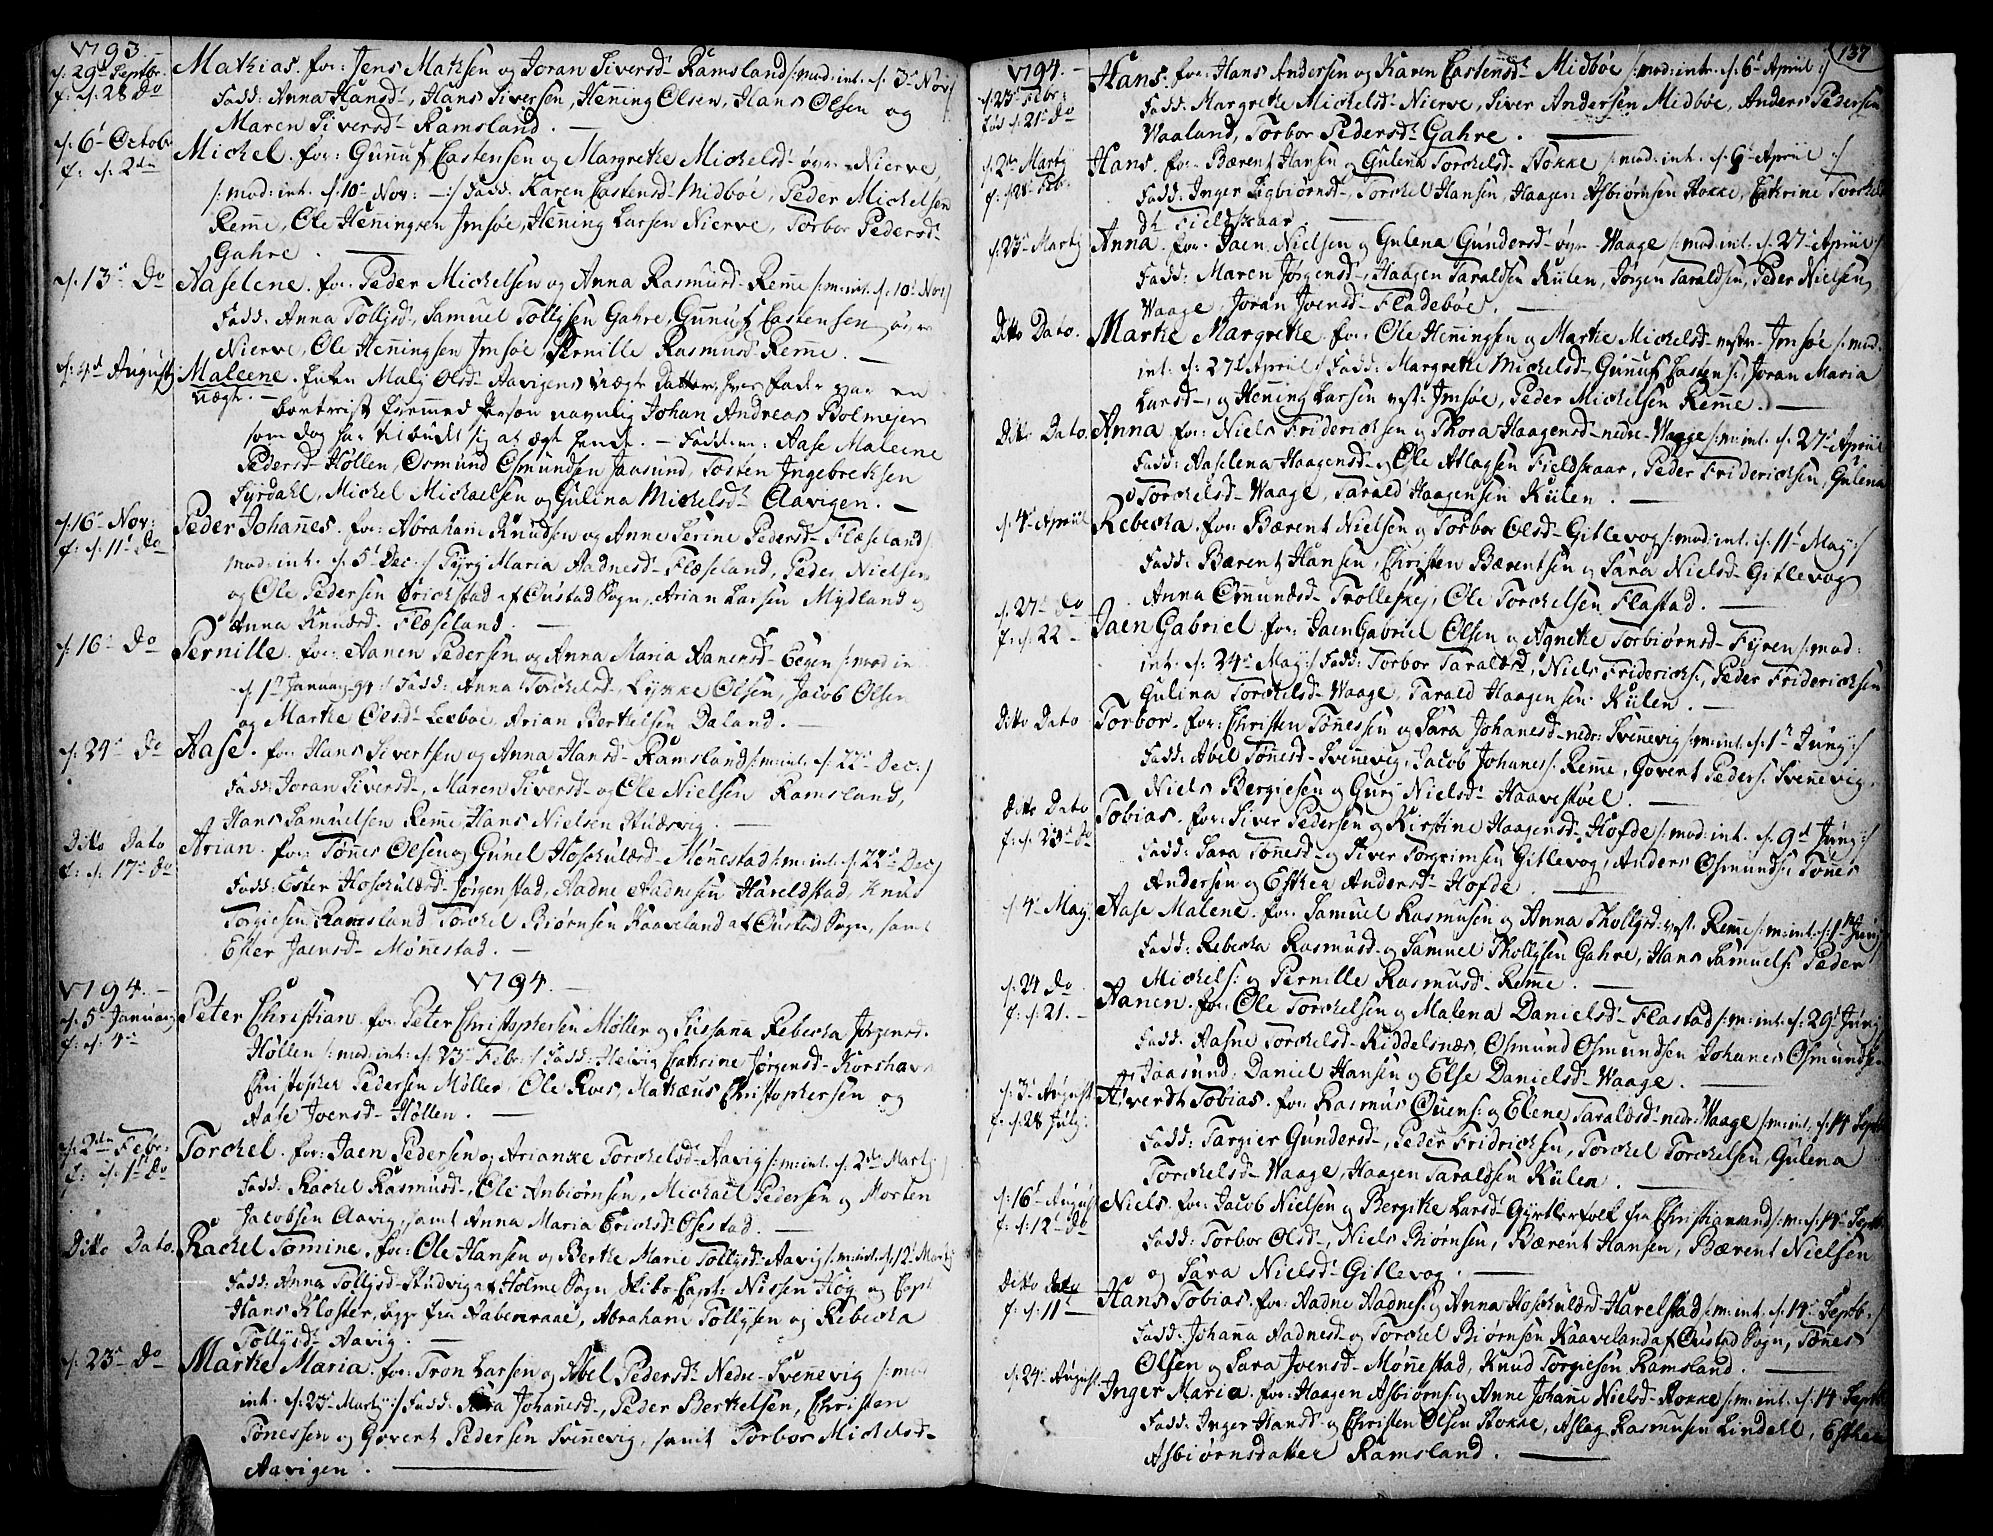 1793.
d: 29d Septbr.
f: d: 28 Do
Mathias. for: Jens Mathsen og Joran Siversd- Ramsland /:mod: int. d: 3d Nov:/
Fadd: Anna Hansd-, Hans Siversen, Henning Olsen, Hans Olsen og
Maren Siversd- Ramsland. —
d: 6d Octob:
f: d: 2den
Michel. for: Gunuf Castensen og Margrethe Michelsd- øvre Nierve,
/:mod: int. d: 10d Nov: —:/ Fadd: Karen Castensd- Midbøe, Peder Michelsen
Reme, Ole Henningsen Imsøe, Hening Larsen Nierve, Torbor Pedersd-
Gahre. —
d: 13d Do
Aaselene. for: Peder Michelsen og Anna Rasmusd- Reme /:m: int. d: 10d Nov:/
Fadd: Anna Tollysd-, Samuel Tollysen Gahre, Gunuf Castensen øvre
Nierve, Ole Henningsen Imsøe, Pernille Rasmusd- Reme. —
d: 4d Augusty
Maleene. Malj Olsd- Aavigens Uægte Datter, hvis fader var en
Uægte. —
Person navnlig Johan Andreas Bolmejer
som dog har tilbudt sig at ægte hende. — Fadderne: Aase Maleene
Pedersd- Høllen, Osmund Osmundsen Jaasund, Tosten Ingebrethsen
Syrdahl, Michel Michaelsen og Gulina Michelsd- Aavigen. —
d: 16d Nov:
f: d: 11d Do
Peder Johannes. for: Abraham Knudsen og Anne Serine Pedersd- Fleseland /
mod: int. d: 5d Dec:/ Tyri Maria Aadnesd- Fleseland, Peder Nielsen
og Ole Pedersen Erichstad af Øustad Sogn, Arian Larsen Mydland og
Anna Knudsd- Fleseland. —
d: 16d Do
Pernille. for: Aanen Pedersen og Anna Maria Aanensd- Eegen /:mod in
d: 1t January 94:/ Fadd: Anna Torchelsd-, Lykke Olsen, Jacob Olsen
og Marthe Olsd- Leebøe, Arian Berthelsen Daland. —
d: 24d Do
Aase. for: Hans Sivertsen og Anna Hansd- Ramsland /:m: int. d: 22d Dec:/
Fadd: Joran Siversd-, Maren Siversd- og Ole Nielsen Ramsland,
Hans Samuelsen Reme, Hans Nielsen Studevig. —
Ditto Dato
f: d: 17d Do
Arian. for: Tønnes Olsen og Gunel Hoschulsd- Mønnestad /:m: int. d: 22d Dec:/
Fadd: Ester Hoschulsd- Jørgenstad, Aadne Aadnesen Hareldstad, Knud
Torgiesen Ramsland, Torchel Biørnsen Kaaveland af Øustad Sogn, samt
Ester Jaensd- Mønnestad. —
1794. —
1794. —
d: 5d Januar:
f: d: 4d
Peter Christian. for: Peter Christophersen Møller og Sussana Rebecka Jørgensd-
Høllen /:mod: int: d: 13d Febr:/ Fadd: Helvig Cathrine Jørgensd- Korshavn
Christopher Pedersen Møller, Ole Roes, Mathæus Christophersen og
Aase Joensd- Høllen. —
d: 2den Febr:
f: d: 1t Do
Torchel. for: Jaen Pedersen og Arianne Torchelsd- Aavig /:m: int. d: 2den Martj:/
Fadd: Rachel Rasmusd-, Ole Anbiørnsen, Michael Pedersen og Morten
Jacobsen Aavig, samt Anna Maria Erichsd- Osestad. —
Ditto Dato.
Rachel Tomine. for: Ole Hansen og Berthe Marie Tollysd- Aavig /:m: int. d: 12d Martj
Fadd: Anna Tollysd- Studvig af Holme Sogn, Skibs-Capt: Nissen Høg og Capt
Hans Kloster, begge fra Aabenraae, Abraham Tollysen og Rebecka
Tollysd- Aavig. —
d: 23d Do
Marthe Maria. for: Tron Larsen og Abel Pedersd- Nedre-Svennevig /:mod
int. d: 23d Martj:/ Fadd: Sara Johannesd-, Peder Berthelsen, Christen
Tønessen og Govert Pedersen Svinnevig, samt Torbor Michelsd-
Aavigen. —
137
1794. —
d: 23d Febr:
fød d: 21d Do
Hans. for: Hans Andersen og Karen Castensd- Midbøe /:mod: intr. d: 6d April:/
Fadd: Margrethe Michelsd- Nierve, Siver Andersen Midbøe, Anders Pedersen
Vaaland, Torbor Pedersd- Gahre. —
d: 2den Martj
f: d: 28 Feb:
Hans. for: Bærent Hansen og Gulena Torchelsd- Stokke /:mod: int. d: 6d April:/
Fadd: Inger Asbiørnsd-, Torchel Hansen, Haagen Asbiørnsen Stokke, Cathrine Torchels
Dr Fieldskaar. —
d: 23d Martj
Anna. for: Jaen Nielsen og Gulena Gundersd- øvre Waage /:mod: int. d: 27d April:/
Fadd: Maren Jørgensd-, Haagen Taraldsen Kulen, Jørgen Taraldsen, Peder Nielsen
Waage, Joran Joensd- Fladebøe. —
Ditto Dato.
Marthe Margrethe. for: Ole Henningsen og Marthe Michelsd- vestr- Imsøe /:mod:
int. d: 27d April:/ Fadd: Margrethe Michelsd-, Gunuf Castens: Joran Maria
Larsd-, og Hening Larsen vest: Imsøe, Peder Michelsen Reme. —
Ditto Dato.
Anna for: Niels Friderichsen og Thora Haagensd- nedre-Waage /:m: int. d: 27d April
Fadd: Aaselena Haagensd- og Ole Atlagsen Fieldskaar, Peder Friderichsen, Gulena
Torchelsd- Waage, Tarald Haagensen Kulen. —
d: 4d April
Rebecka. for: Bærent Nielsen og Torbor Olsd- Gitlevog /:mod: int. d: 11d May:/
Fadd: Bærent Hansen, Christen Bærentsen og Sara Nielsd- Gitlevog
Anna Omundsd- Trolleskej, Ole Torchelsen Flastad. —
d: 27d Do
f: d: 22 —
Jaen Gabriel. for: Jaen Gabriel Olsen og Agnethe Torbiørnsd- Fyren /:mod:
int. d: 24d May:/ Fadd: Torbor Taraldsd-, Niels Friderichs:, Peder Friderichsen
Gulina Torchelsd- Waage, Tarald Haagensen Kulen. —
Ditto Dato
Torbor. for: Christen Tønessen og Sara Johanesd- nedr: Svinevig /:m: int. d: 1t Juny:/
Fadd: Abel Tønesd- Svinevig, Jacob Johanes: Reme, Govert Peders: Svennevig,
Niels Bergiesen og Guri Nielsd- Haavestøel. —
Ditto Dato
f: d: 23d do
Tobias. for: Siver Pedersen og Kirstine Haagensd- Hofde /:mod: int. d: 9d Juny:/
Fadd: Sara Tønesd- og Siver Torgrimsen Gitlevog, Anders Osmunds: Tønes
Andersen og Esther Andersd- Hofde. —
d: 4d May
Aase Malene. for: Samuel Rasmusen og Anna Thollysd- vest: Reme /:m: int. d: 1t Juny
Fadd: Rebecka Rasmusd- og Samuel Thollysen Gahre, Hans Samuels: Peder
Michels: og Pernille Rasmusd- Reme. —
d: 24 do
f: d: 21. —
Aanen. for: Ole Torchelsen og Malena Danielsd- Flastad /:m: int. d: 29d Juny
Fadd: Aasne Torchelsd- Riddelsnæs, Osmund Osmundsen, Johanes Osmundsen
Jaasund, Daniel Hansen og Else Danielsd- Waage. —
d: 3d August
f: d: 28 July:
Siverdt Tobias. for: Rasmus Ouens: og Elene Taraldsd- nedr: Waage /:m: int. d: 14 Septb
Fadd: Targier Gundersd-, Peder Fridrichsen, Torchel Torchelsen, Gulena
Torchelsd- Waage, Haagen Taraldsen Kulen. —
d: 16d August
f: d: 12d do
Niels. for: Jacob Nielsen og Bergithe Larsd- Gyrtlerfolk fra Christiansand /:m: d: 14d Septb:
Fadd: Torbor Olsd-, Niels Biørnsen, Bærent Hansen, Bærent Nielsen
og Sara Nielsd- Gitlevog. —
Ditto Dato
f: d: 11d
Hans Tobias. for: Aadne Aadnes: og Anna Hoschulsd- Harelstad /:m: int. d: 14d Septb:/
Fadd: Johanna Aadnesd- og Torchel Biørnsen Kaaveland af Øustad Sogn, Tønnes
Olsen og Sara Joensd- Mønnestad, Knud Torgiesen Ramsland. —
d: 24d August
Inger Maria. for: Haagen Asbiørns: og Anne Johanne Nielsd- Stokke /:m: int. d: 14 Septb
Fadd: Inger Hansd- og Christen Olsen Stokke, Aslag Rasmusen Lindahl, Esther
Asbiørnsdatter Ramsland. —